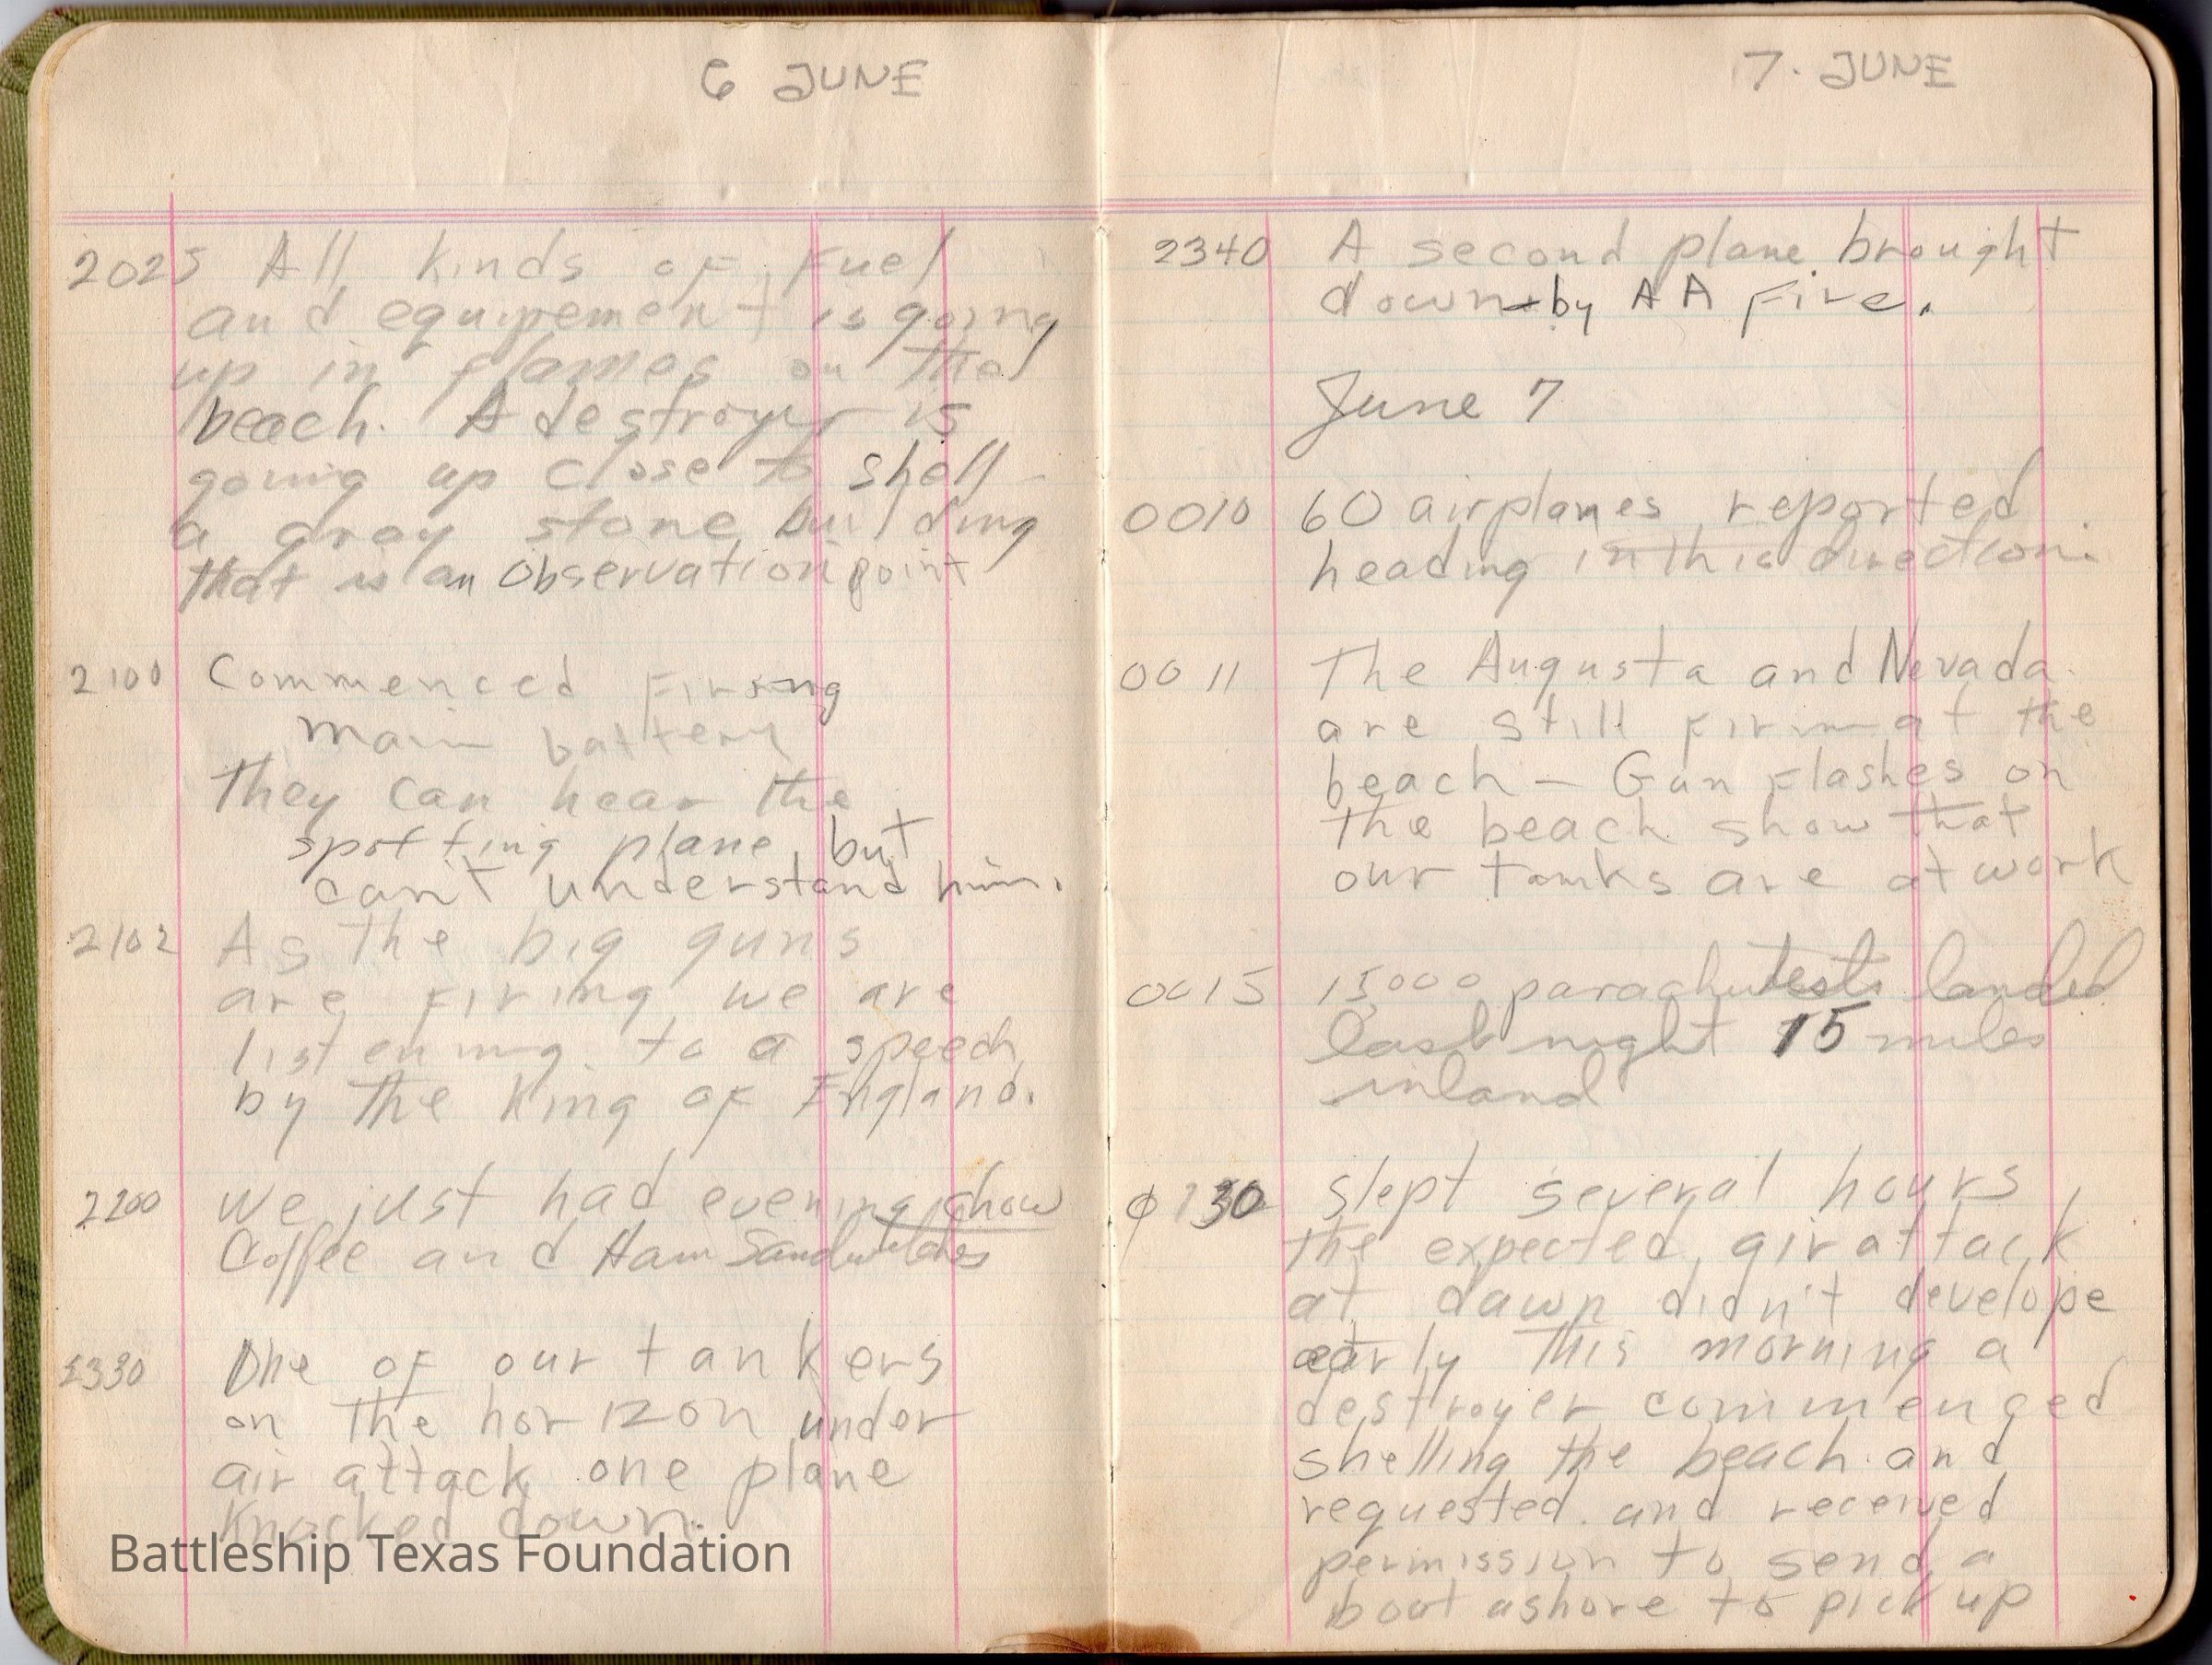 6 JUNE
2025 All kinds of Fuel
and equipement is going
up in flames on the
beach. A destroyer is
going up close to shell
a gray stone building
that is an Observation point
2100 Commenced Firing
main battery
They can hear the
spotting plane, but
can't understand him.
2102 As the big guns
are firing we are
listening to a speech
by the King of England.
2200 We just had evening chow
Coffee and Ham Sandwitches
2330 One of our tankers
on the horizon under
air attack one plane
Knocked down.
Battleship Texas Foundation
7. JUNE
2340 A second plane brought
down by AA fire.
June 7
0010 60 airplanes reported
heading in this direction.
0011 The Augusta and Nevada
are still firing at the
beach — Gun flashes on
the beach show that
our tanks are at work
0015 15000 parachutests landed
last night 15 miles
inland
slept several hours,
the expected air attack
at dawn didn't develope
early this morning a
destroyer commenced
shelling the beach and
requested and received
permission to send a
boat ashore to pick up